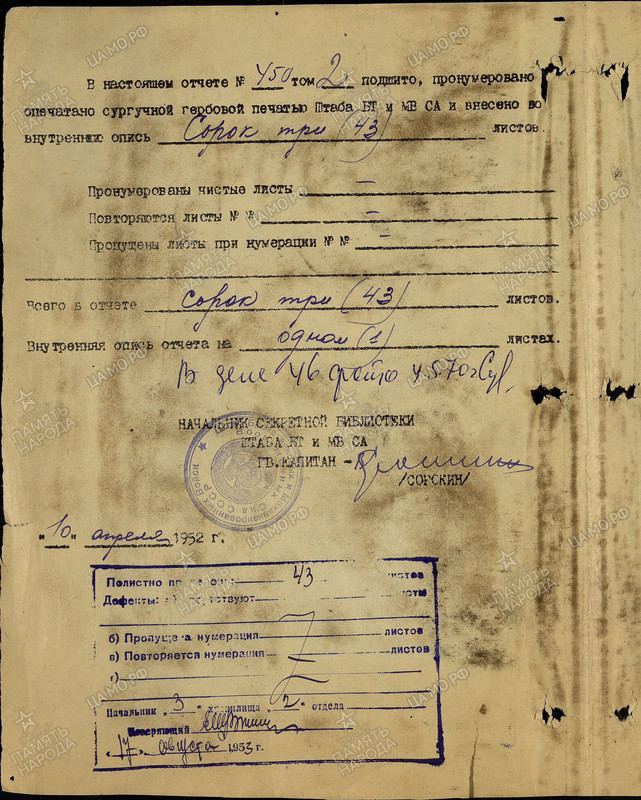 В настоящем отчете № 450 том 2 подшито, пронумеровано
опечатано сургучной гербовой печатью Штаба БТ и МВ СА и внесено во
внутреннюю опись Сорок три (43) листов.
Пронумерованы чистые листы —
Повторяются листы № № —
Пропущены листы при нумерации № № —
Всего в отчете сорок три (43) листов.
Внутренняя опись отчета на одном (1) листах.
В деле 46 фото
НАЧАЛЬНИК СЕКРЕТНОЙ БИБЛИОТЕКИ
ШТАБА БТ и МВ СА
ГВ. КАПИТАН -
/СОРОКИН/
"10" апреля 1952 г.
Полистно 43 листов
Дефекты:
б) Пропущена нумерация листов
в) Повторяется нумерация листов
г)
Начальник "3" хранилища "2" отдела
"17" августа 1953 г.
ПАМЯТЬ НАРОДА
ЦАМО.РФ